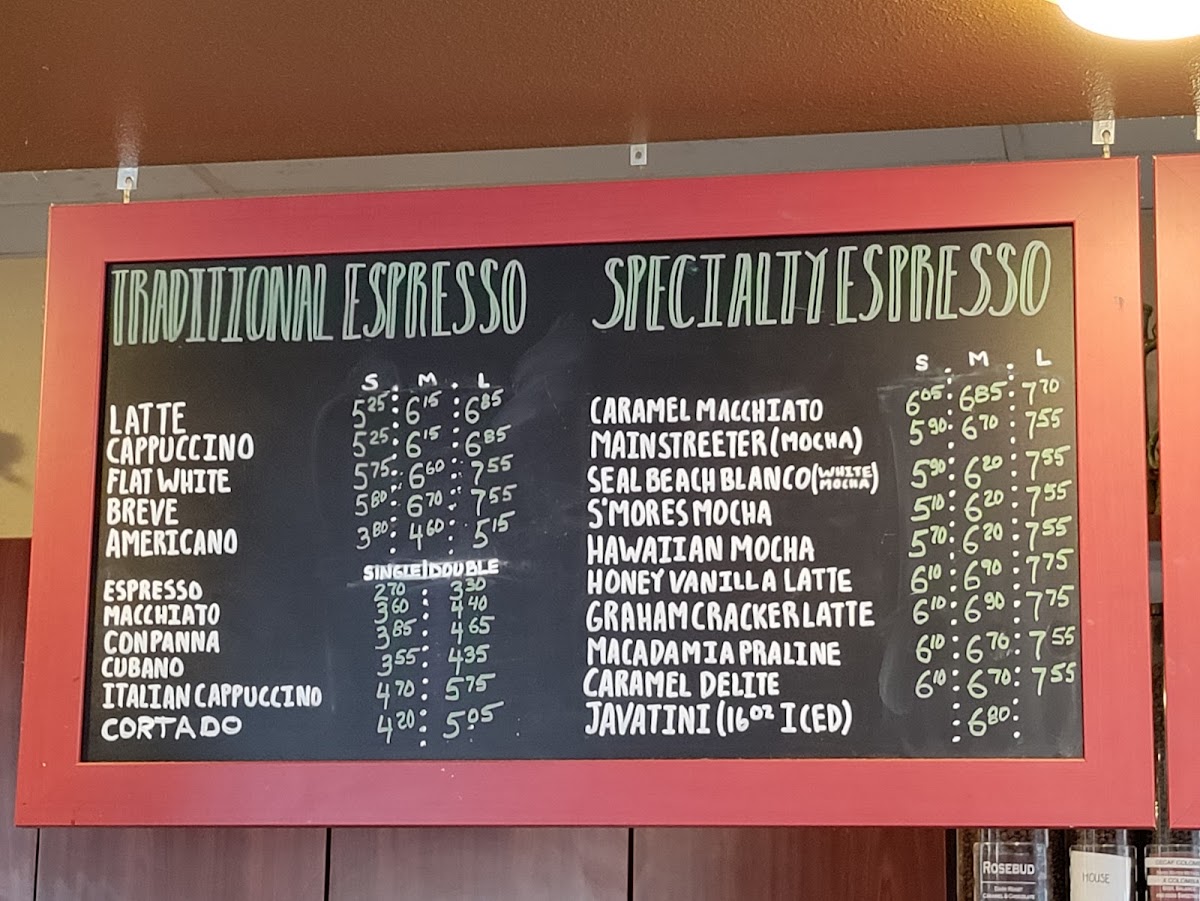 TRADITIONAL ESPRESSO
S . M . L
LATTE 5 25 : 6 15 : 6 85
CAPPUCCINO 5 25 : 6 15 : 6 85
FLAT WHITE 5 75 : 6 60 : 7 55
BREVE 5 80 : 6 70 : 7 55
AMERICANO 3 80 : 4 60 : 5 15
SINGLE|DOUBLE
ESPRESSO 2 70 : 3 30
MACCHIATO 3 60 : 4 40
CONPANNA 3 85 : 4 65
CUBANO 3 55 : 4 35
ITALIAN CAPPUCCINO 4 70 : 5 75
CORTADO 4 20 : 5 05
SPECIALTY ESPRESSO
S . M . L
CARAMEL MACCHIATO 6 05 : 6 85 : 7 70
MAINSTREETER (MOCHA) 5 90 : 6 70 : 7 55
SEAL BEACH BLANCO (WHITE MOCHA) 5 90 : 6 20 : 7 55
S'MORES MOCHA 5 10 : 6 20 : 7 55
HAWAIIAN MOCHA 5 70 : 6 20 : 7 55
HONEY VANILLA LATTE 6 10 : 6 90 : 7 75
GRAHAM CRACKER LATTE 6 10 : 6 90 : 7 75
MACADAMIA PRALINE 6 10 : 6 70 : 7 55
CARAMEL DELITE 6 10 : 6 70 : 7 55
JAVATINI (16 oz ICED) : 6 80 :
ROSEBUD
DARK ROAST
CARAMEL & CHOCOLATE
HOUSE
DECAF